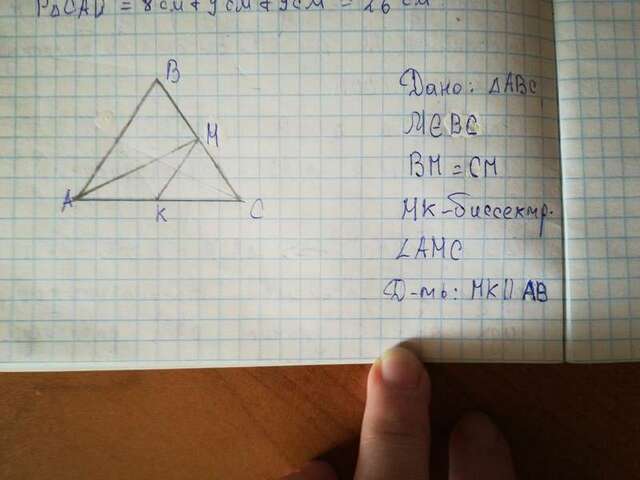 P△CAD = 8 см + 9 см + 9 см = 26 см
B
M
A
K
C
Дано: △ABC
M∈BC
BM = CM
MK-биссектр.
∠AMC
Д-ть: MK || AB